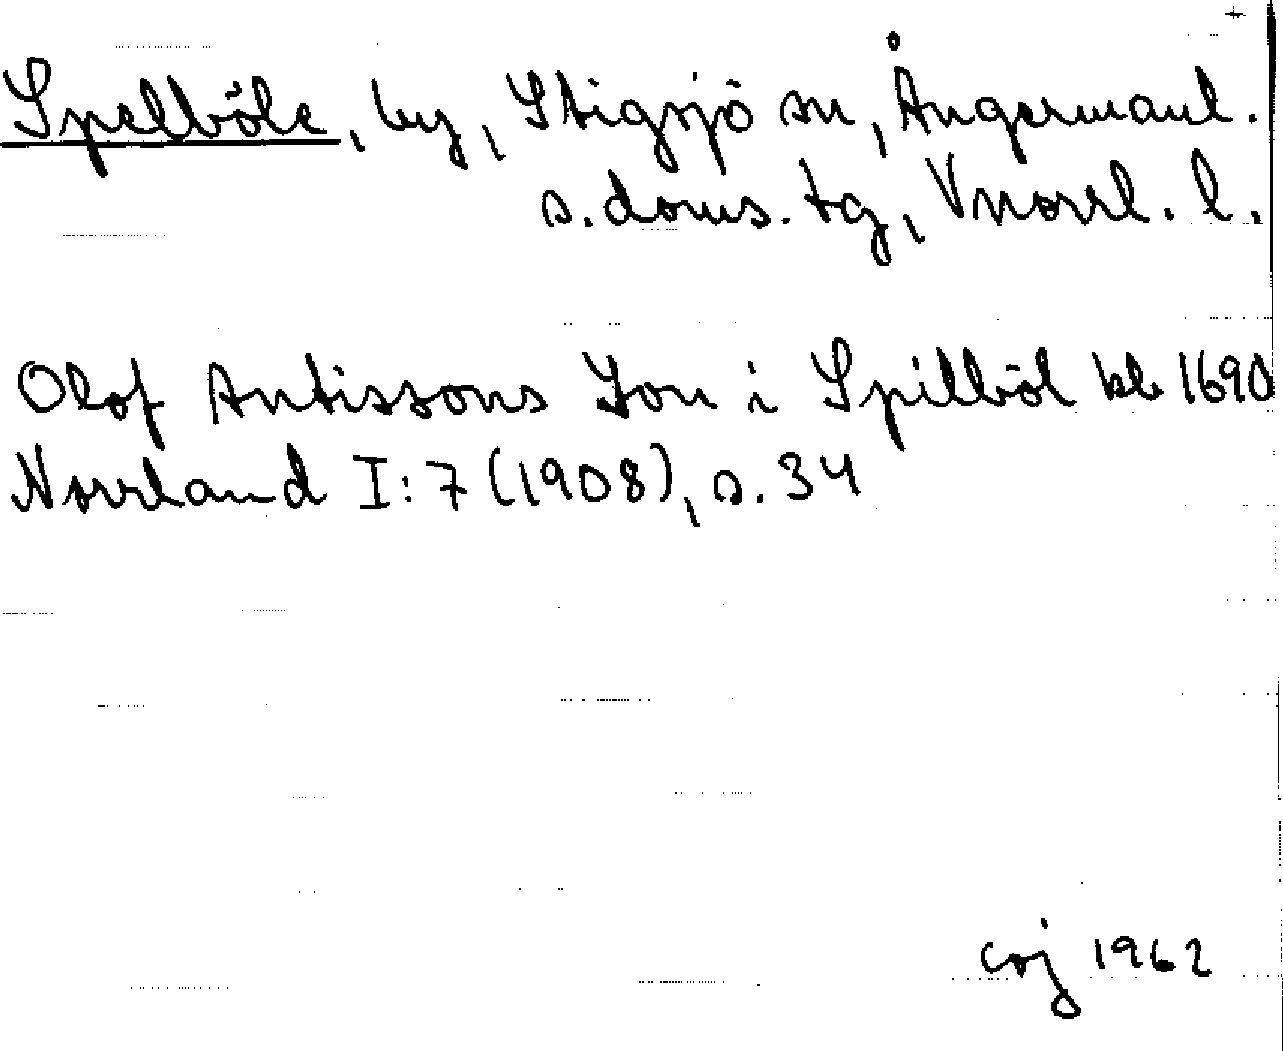 Spelböle, by, Stigsjö sn, Ångermanl.
s. doms. tg, Vnorrl. l.
Olof Antissons Jon i Spillböl kb 1690
Norrland I:7 (1908), s. 34
coj 1962